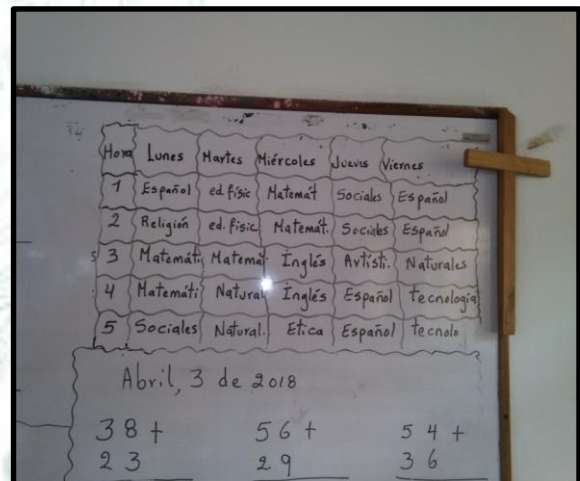 Hora Lunes Martes Miércoles Jueves Viernes
1 Español ed. físic Matemát Sociales Español
2 Religión ed. físic Matemát. Sociales Español
3 Matemáti. Matemát Inglés Artísti. Naturales
4 Matemáti Natural Inglés Español tecnología
5 Sociales Natural. Etica Español tecnolo
Abril, 3 de 2018
38+ 56+ 54+
23 29 36